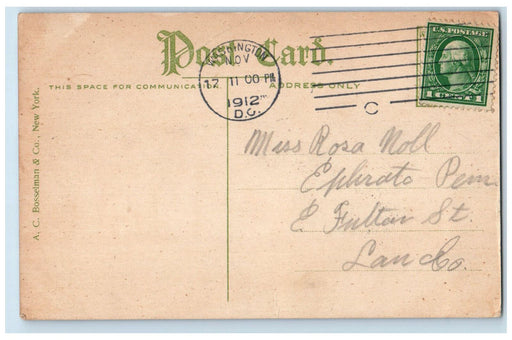 Post Card.
THIS SPACE FOR COMMUNICATION
ADDRESS ONLY
WASHINGTON
NOV
17 11 00 PM
1912
D.C.
C
U.S. POSTAGE
1 CENT 1
A. C. Bosselman & Co., New York.
Miss Rosa Noll
Ephrata Penn
E Fulton St.
Lan Co.